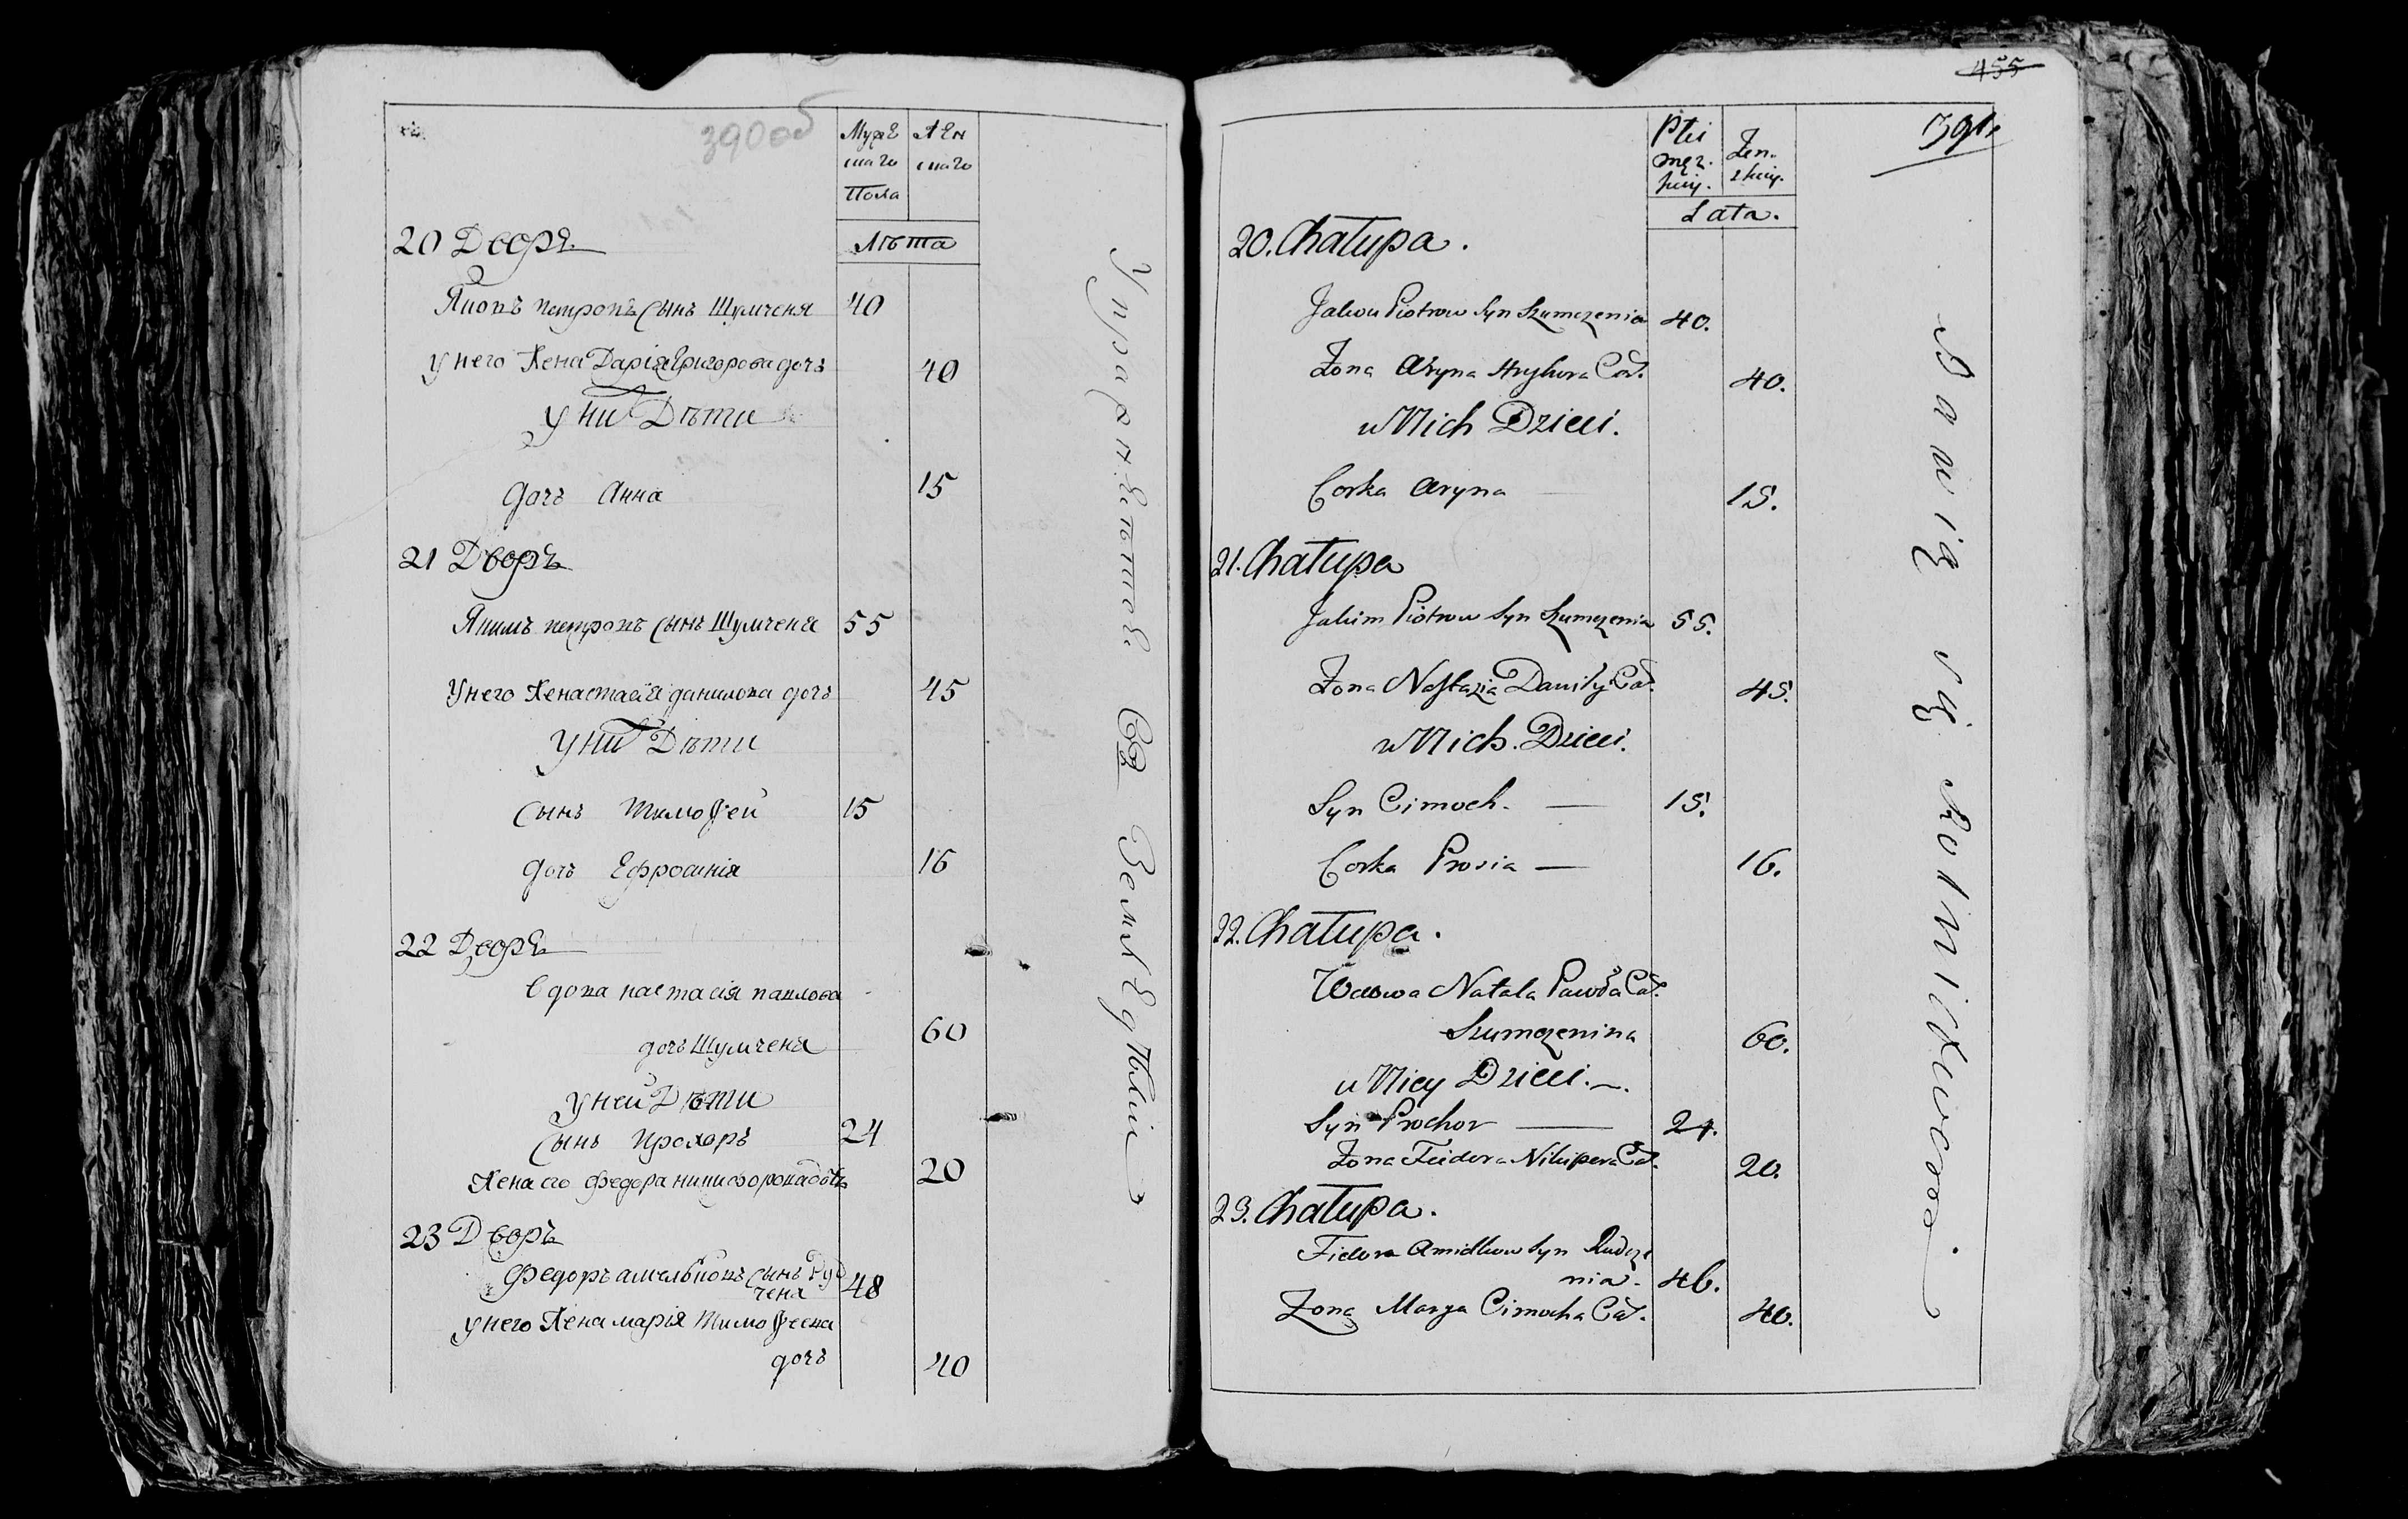 390 об
Мужескаго Пола
Женскаго
Лѣта
20 Дворъ
Яковъ петровъ сынъ Шумченя 40
У него Жена Дарія Григорова дочь 40
У них Дѣти
дочь Анна 15
21 Дворъ
Якимъ петровъ сынъ Шумченя 55
У него Жена настасія данилова дочь 45
У них Дѣти
сынъ Тимоѳей 15
дочь Ефросинія 16
22 Дворъ
Вдова настасія павлова
дочь Шумченя 60
У ней Дѣти
сынъ прохоръ 24
Жена его Федора никифорова дочь 20
23 Дворъ
Федоръ амельяновъ сынъ Руд
ченя 48
У него Жена марія Тимоѳеева
дочь 40
Упражняются въ Земледѣліи
455
391.
Płci męzkiey.
Zenskiey.
Lata.
20. Chałupa.
Jakow Piotrow Syn Szumczenia 40.
Zona Aryna Hryhora Cór. 40.
u Nich Dzieci.
Corka Aryna 15.
21. Chałupa
Jakim Piotrow Syn Szumczenia 55.
Zona Nastazia Daniły Cór. 45.
u Nich Dzieci.
Syn Cimoch. — 15.
Corka Prosia — 16.
22. Chałupa.
Wdowa Natala Pawła Cór.
Szumczenina 60.
u Niey Dzieci. —.
Syn Prochor — 24.
Zona Fiedora Nikipera Cór. 20.
23. Chałupa.
Fiedor Amielkow Syn Rudcze
nia. 46.
Zona Marya Cimocha Cór. 40.
Bawią się Rolnictwem.